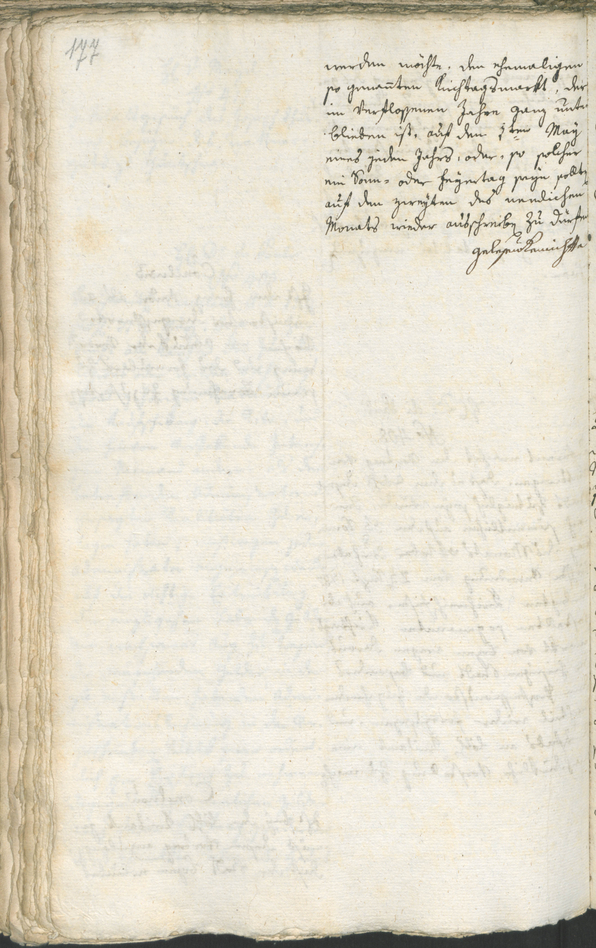 177
werden möchte, den ehemaligen
so genañten Kirchtagsmarkt, der
im verfloßenen Jahre ganz unter
blieben ist, auf den May
eines jeden Jahrs, oder, so solcher
ein Sonn- oder Feyertag seyn sollte
auf den zweyten des nemlichen
Monats wieder ausschreiben zu dürfen